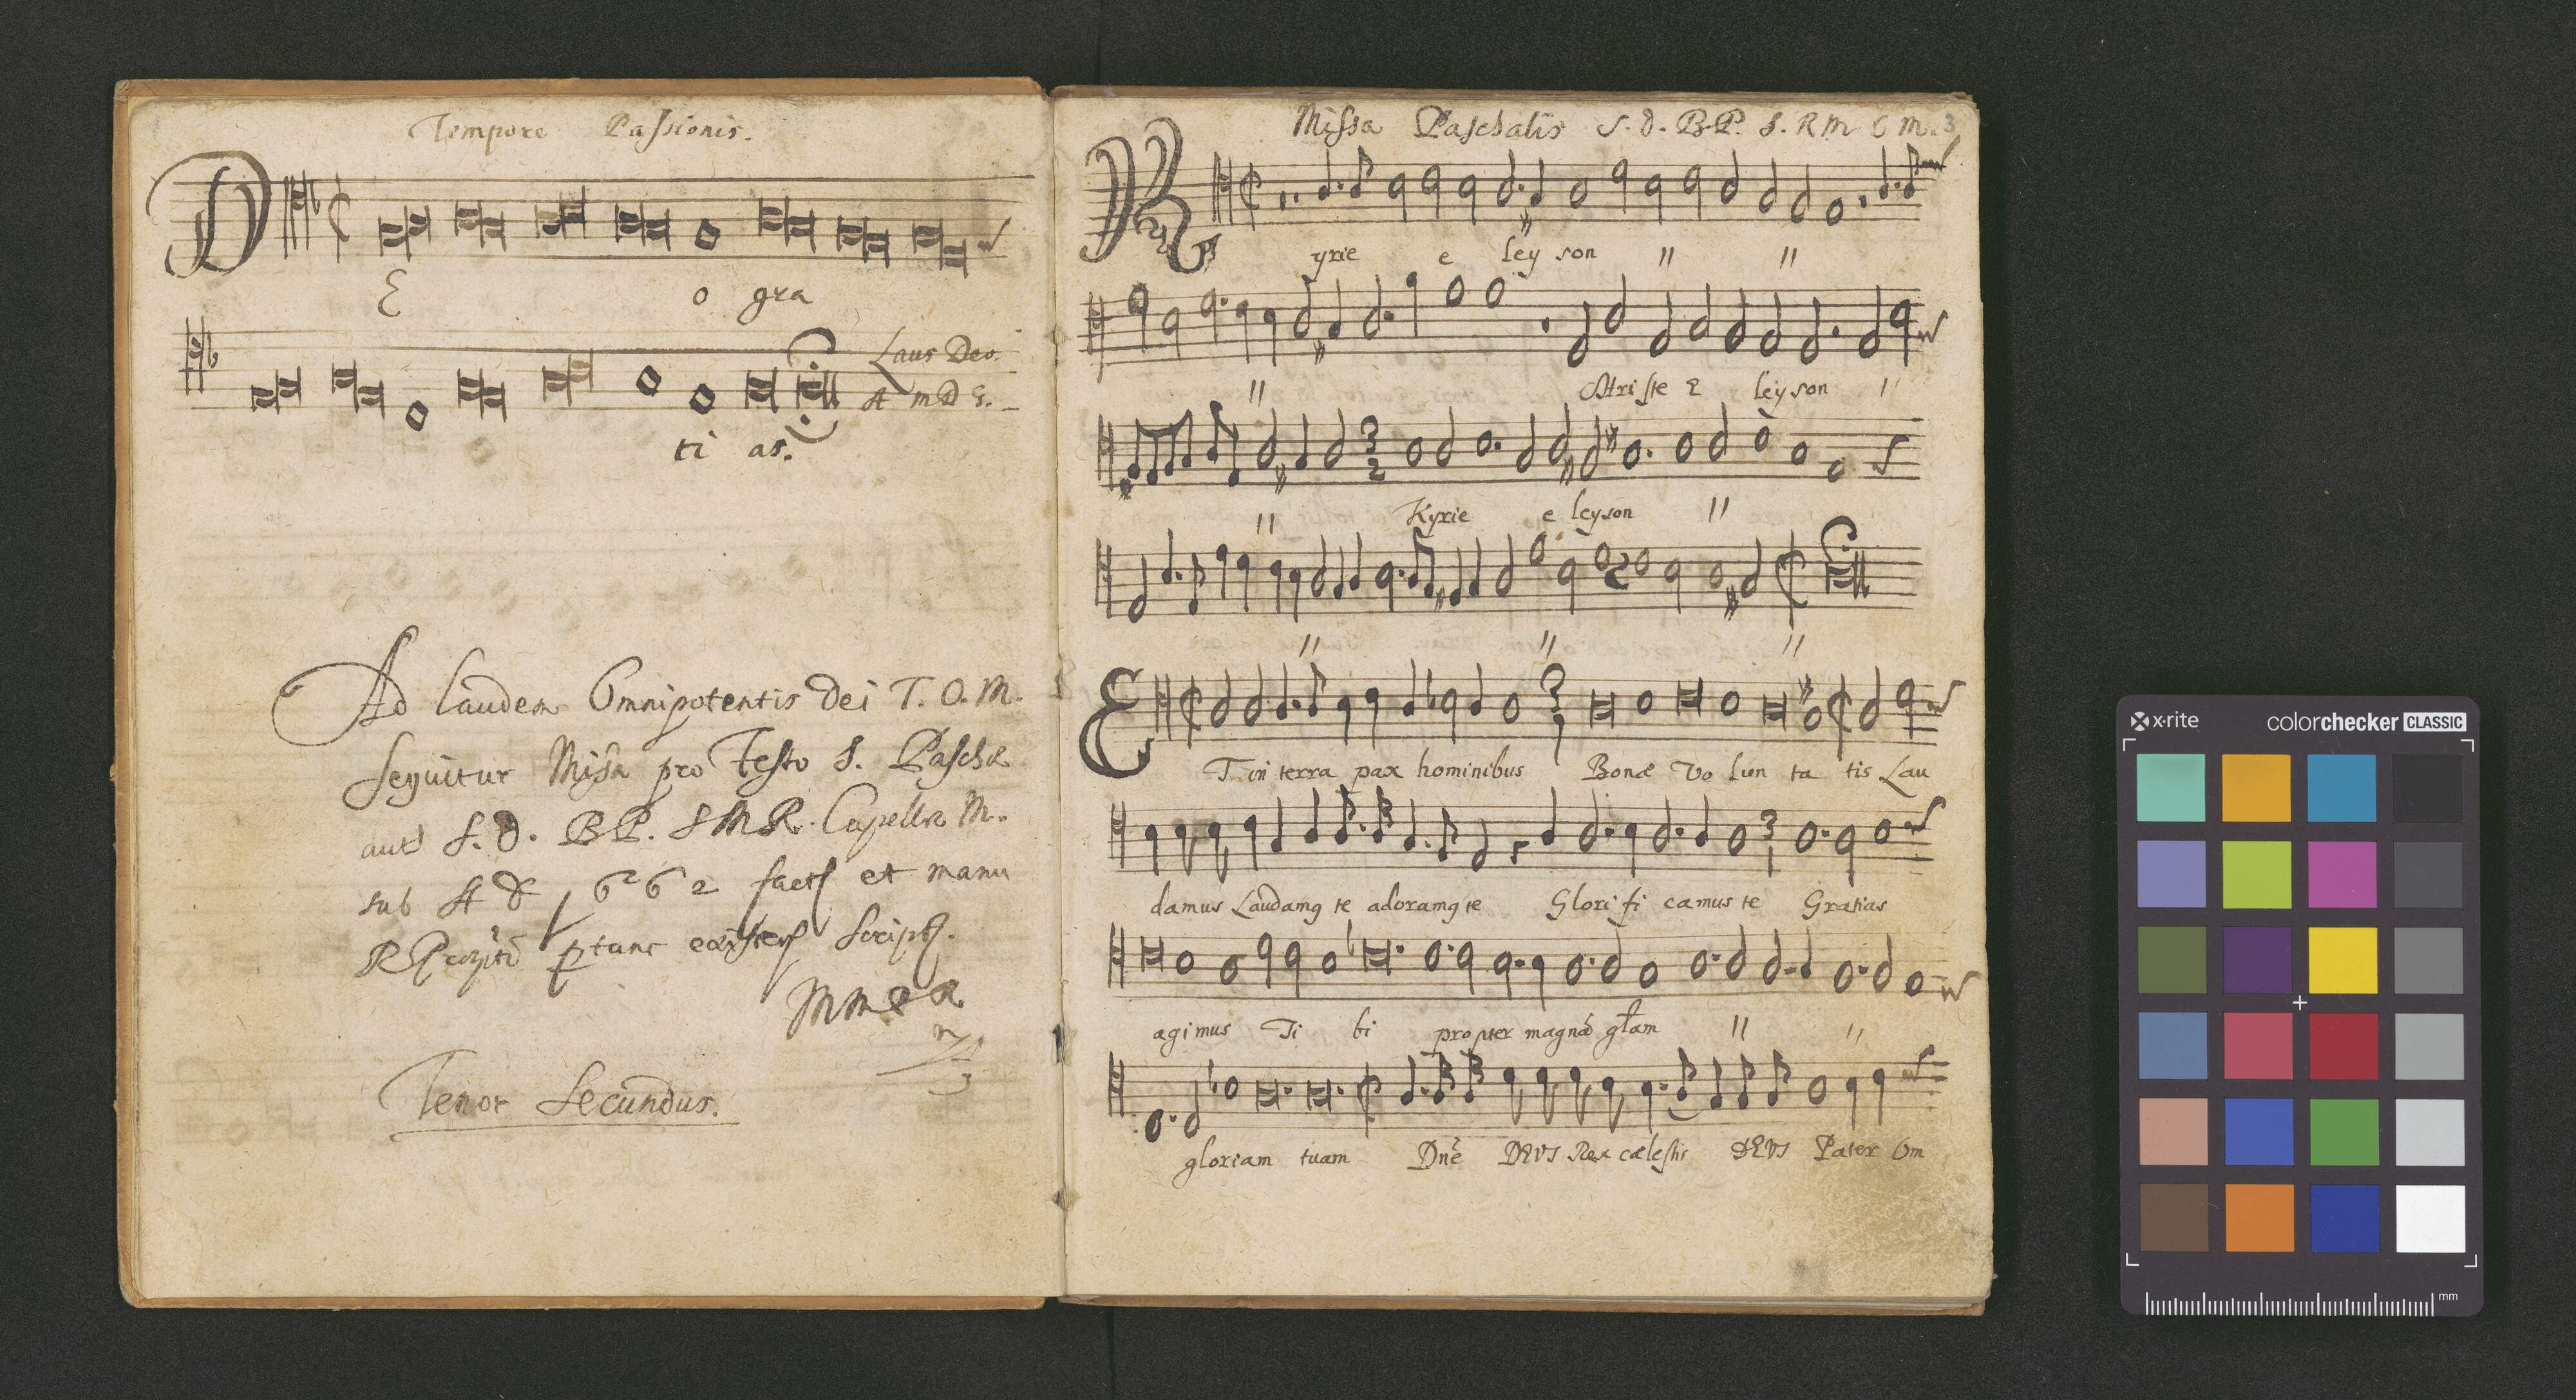 Tempore Passionis.
DE o gra
Laus Deo.
A m D G.
ti as.
Ad laudem Omnipotentis Dei T. O. M.
Sequitur Missa pro Festo S. Pascha
S. d. B P. S M R. Capellæ M.
sub A 1662 et manu
ptunc
Tenor Secundus.
Missa Paschalis S. d. B. P. S. R M C M. 3
Kyrie e ley son " "
" Christe e leyson "
" Kyrie e leyson "
" " "
ET in terra pax hominibus Bonæ Vo lun ta tis Lau
damus Laudamg te adoramg te Glori fi camus te Gratias
agimus Ti bi propter magnā glam " "
gloriam tuam Dnē DEVS Rex cælestis DEVS Pater Om
x-rite colorchecker CLASSIC
mm